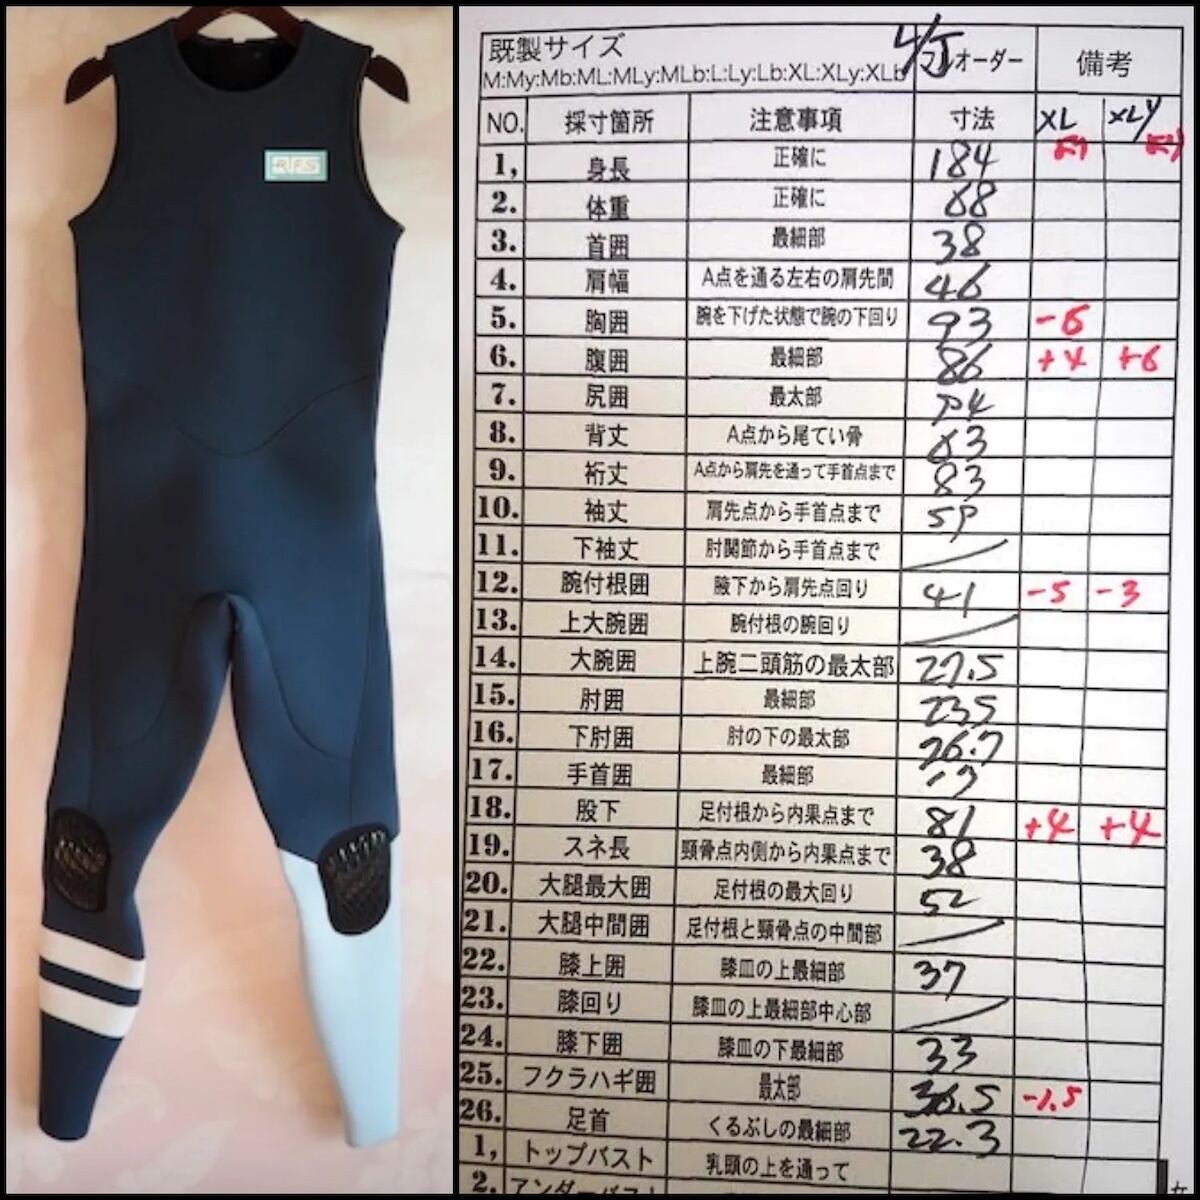 RIFS
既製サイズ フルオーダー 備考
M:My:Mb:ML:MLy:MLb:L:Ly:Lb:XL:XLy:XLb
NO. 採寸箇所 注意事項 寸法 XL XLy
1, 身長 正確に 184
2. 体重 正確に 68
3. 首囲 最細部 38
4. 肩幅 A点を通る左右の肩先間 46
5. 胸囲 腕を下げた状態で腕の下回り 93 -6
6. 腹囲 最細部 86 +4 +6
7. 尻囲 最太部 94
8. 背丈 A点から尾てい骨 63
9. 裄丈 A点から肩先を通って手首点まで 83
10. 袖丈 肩先点から手首点まで 59
11. 下袖丈 肘関節から手首点まで
12. 腕付根囲 腋下から肩先点回り 41 -5 -3
13. 上大腕囲 腕付根の腕回り
14. 大腕囲 上腕二頭筋の最太部 27.5
15. 肘囲 最細部 23.5
16. 下肘囲 肘の下の最太部 26.7
17. 手首囲 最細部
18. 股下 足付根から内果点まで 81 +4 +4
19. スネ長 頸骨点内側から内果点まで 38
20. 大腿最大囲 足付根の最大回り 52
21. 大腿中間囲 足付根と頸骨点の中間部
22. 膝上囲 膝皿の上最細部 37
23. 膝回り 膝皿の上最細部中心部
24. 膝下囲 膝皿の下最細部 33
25. フクラハギ囲 最太部 36.5 -1.5
26. 足首 くるぶしの最細部 22.3
1, トップバスト 乳頭の上を通って
2. アンダーバスト